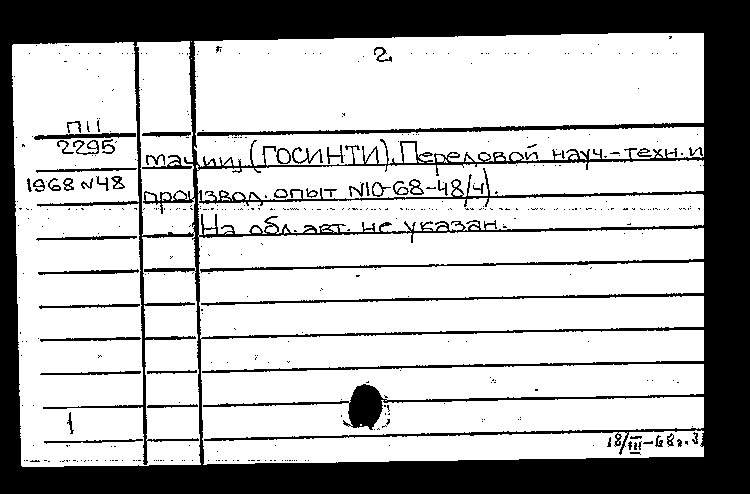 2
П11
2295
1968 №48
(ГОСИНТИ). Передовой науч.-техн. и
производ. опыт №10-68-48/4).
На обл. авт. не указан.
1
18/III-68г.